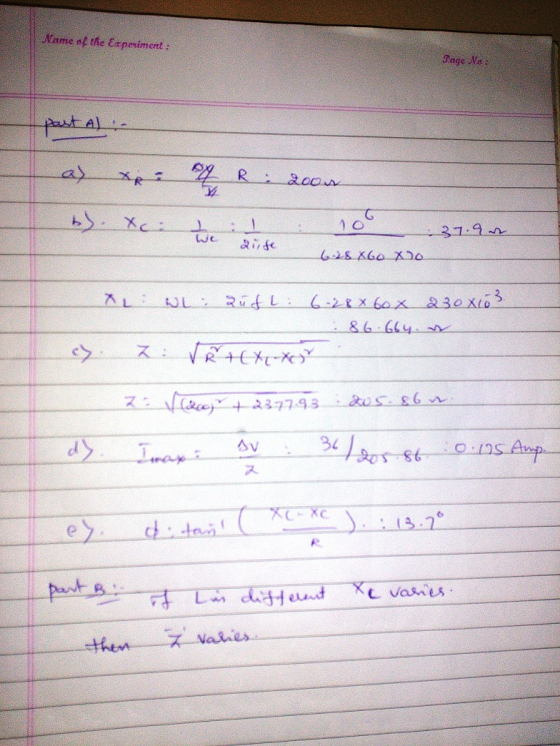 Name of the Experiment :
Page No :
part A) :-
a) X_R = R : 200Ω
b). X_C : 1/ωc : 1/2πfc : 10^6 / 6.28 X60 X70 : 37.9 Ω
X_L : ωL : 2πfL : 6.28 X 60 X 230 X10^-3
: 86.664 Ω
c). Z : √R² + (X_L - X_C)²
Z : √(200)² + 2377.93 : 205.86 Ω
d). Imax : ΔV/Z : 36/205.86 : 0.175 Amp.
e). ϕ : tan⁻¹ ( X_L - X_C / R ). : 13.7°
part B :- if L is different X_L varies.
then Z varies.